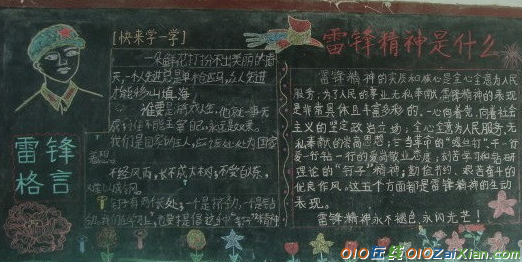 [快来学一学]
一朵鲜花打扮不出美丽的春
天,一个人先进总是单枪匹马,众人先进
才能移山填海。
谁要
我们是国家的主人,应该处处为国家
着想
不经风雨,长不成大树;不受百炼,
难以成钢。
钉子有两个长处:一个是挤劲,一个是钻
劲。
雷锋
格言
雷锋精神是什么
雷锋精神的实质和核心是全心全意为人民
服务,为了人民的事业无私奉献。雷锋精神的表现
是非常具体且丰富多彩的。一心向着党,向着社会
主义的坚定政治立场;全心全意为人民服务,无
私奉献的崇高思想;甘当革命的“螺丝钉”,干一行
爱一行钻一行的爱岗敬业态度;刻苦学习和钻研
理论的“钉子”精神;勤俭节约、艰苦奋斗的
优良作风。这五个方面都是雷锋精神的生动
表现。
雷锋精神永不褪色,永闪光芒!
010在线 010ZaiXian.com